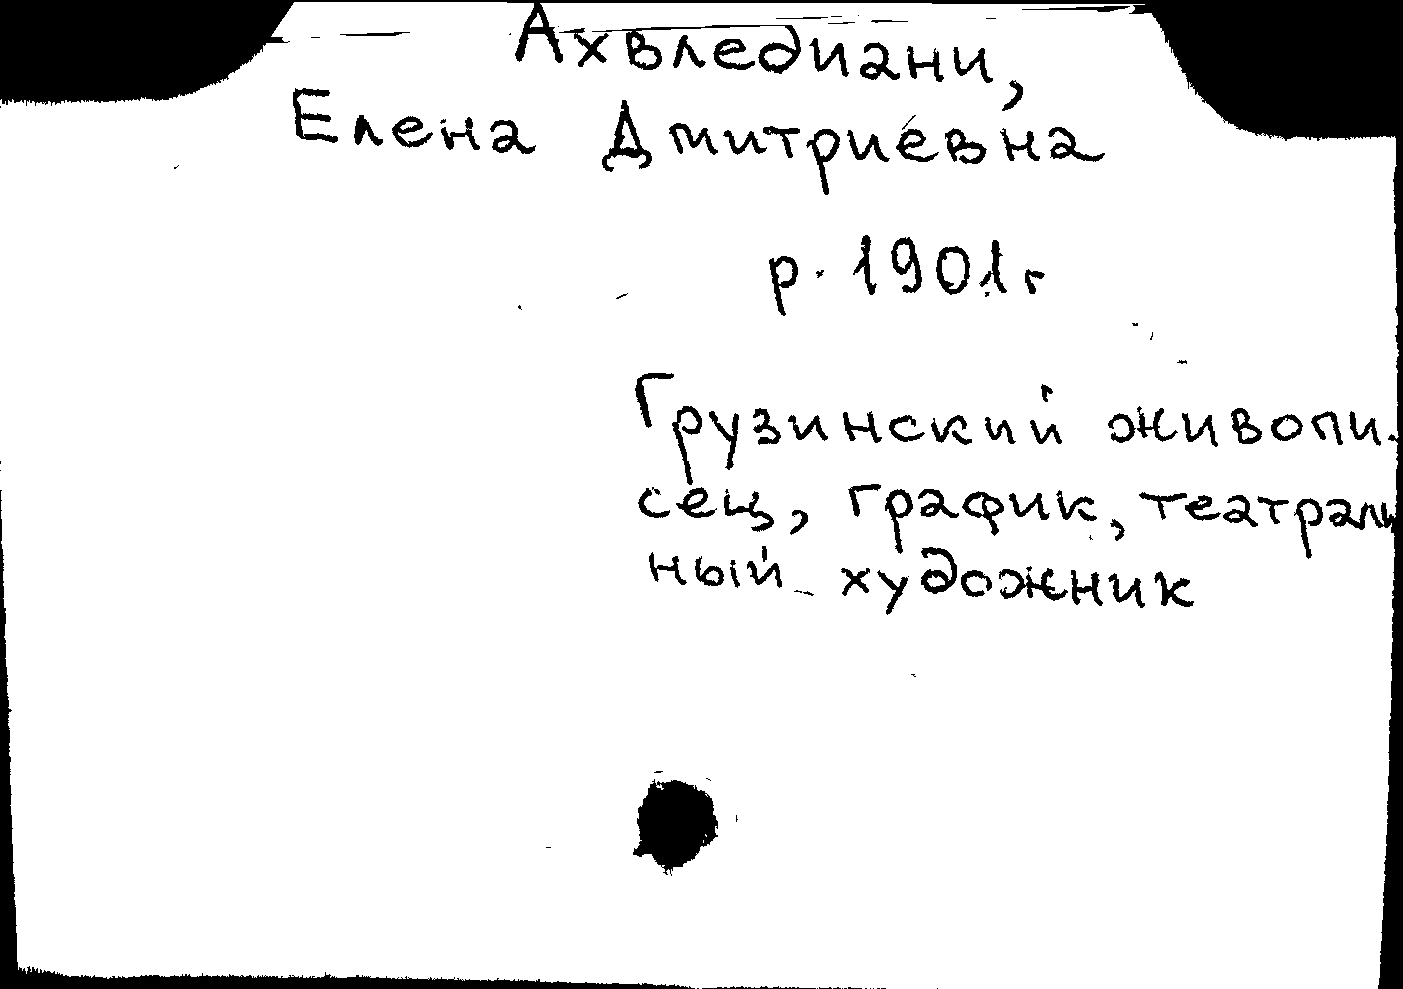 Ахвледиани,
Елена Дмитриевна
р. 1901 г
Грузинский живопи-
сец, график, театраль
ный художник